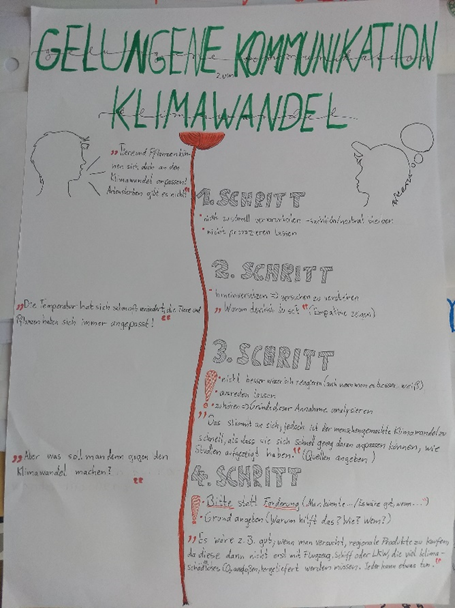 GELUNGENE KOMMUNIKATION
zum
KLIMAWANDEL
„Tiere und Pflanzen kön-
nen sich doch an den
Klimawandel anpassen!
Artensterben gibt es nicht!“
1. SCHRITT
• nicht provozieren lassen
2. SCHRITT
• hineinversetzen => versuchen zu verstehen
„Warum denkst du so?“ (Empathie zeigen)
„Die Temperatur hat sich schon oft verändert, die Tiere und
Pflanzen haben sich immer angepasst!“
3. SCHRITT
• nicht besserwisserisch reagieren (auch wenn man es besser weiß)
• ausreden lassen
• zuhören => Gründe dieser Annahme analysieren
„Das stimmt an sich, jedoch ist der menschengemachte Klimawandel zu
schnell, als dass sie sich schnell genug daran anpassen können, wie
Studien aufgezeigt haben.“ (Quellen angeben)
„Aber was soll man denn gegen den
Klimawandel machen?“
4. SCHRITT
• Bitte statt Forderung (Man könnte.../Es wäre gut, wenn...")
• Grund angeben (Warum hilft das? Wie? Wem?)
„Es wäre z.B. gut, wenn man versucht, regionale Produkte zu kaufen,
da diese dann nicht erst mit Flugzeug, Schiff oder LKW, die viel klima-
schädliches CO₂ ausstoßen, hergeliefert werden müssen. Jeder kann etwas tun.“